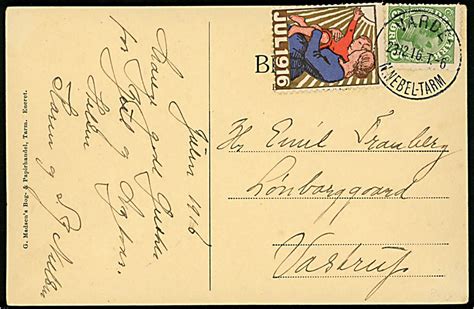 Julen 1916
Mange gode Ønsker
for Jul og Nytaar.
Hilsen
Karen og
G. Madsen's Bog- & Papirhandel, Tarm. Eneret.
B
JUL 1916
VARDE
23.12.16. 7-6
NEBEL-TARM
Hr Emil Tranberg
Lønborggaard
Vostrup